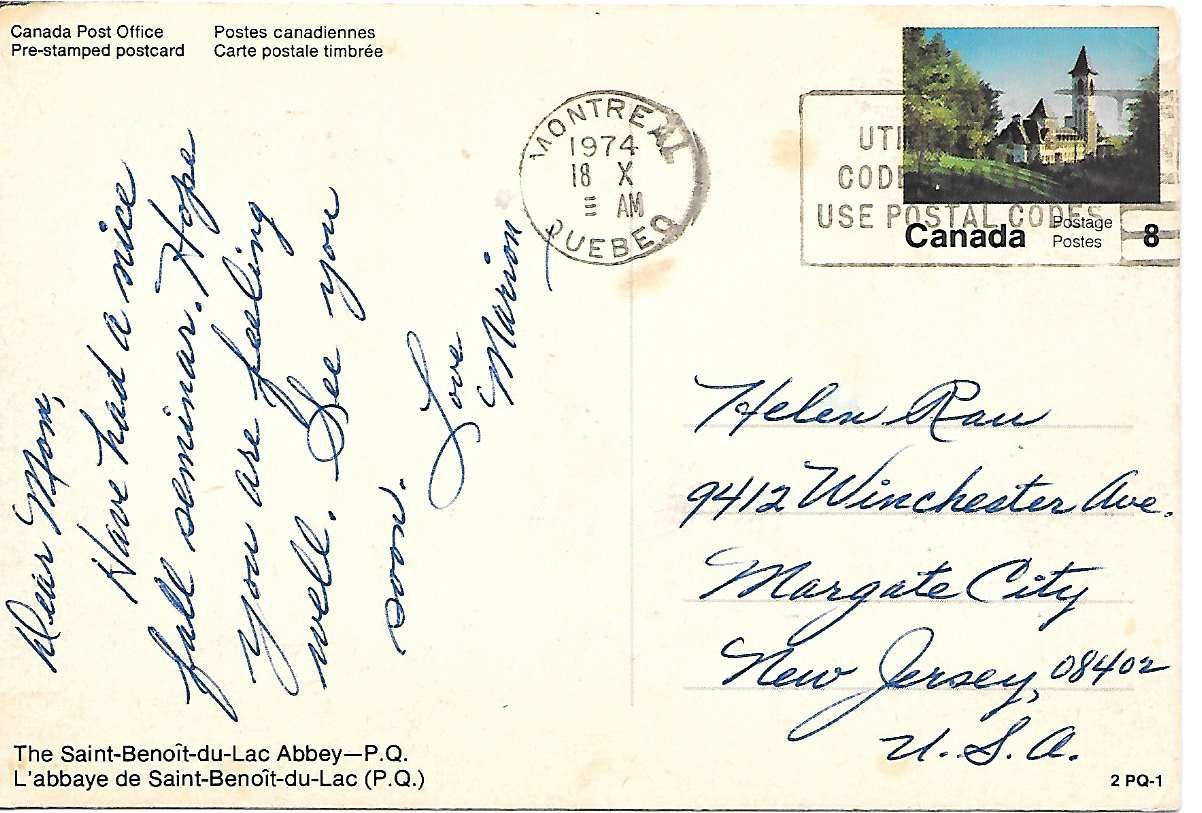 Canada Post Office
Pre-stamped postcard
Postes canadiennes
Carte postale timbrée
MONTREAL
1974
18 X
AM
QUEBEC
UTI
COD
USE POSTAL CODES
Canada
Postage
Postes
8
Dear Mom,
Have had a nice
fall seminar. Hope
you are feeling
well. See you
soon.
Love
Marion
Helen Rau
9412 Winchester Ave.
Margate City
New Jersey, 08402
U.S.A.
The Saint-Benoît-du-Lac Abbey—P.Q.
L'abbaye de Saint-Benoît-du-Lac (P.Q.)
2 PQ-1